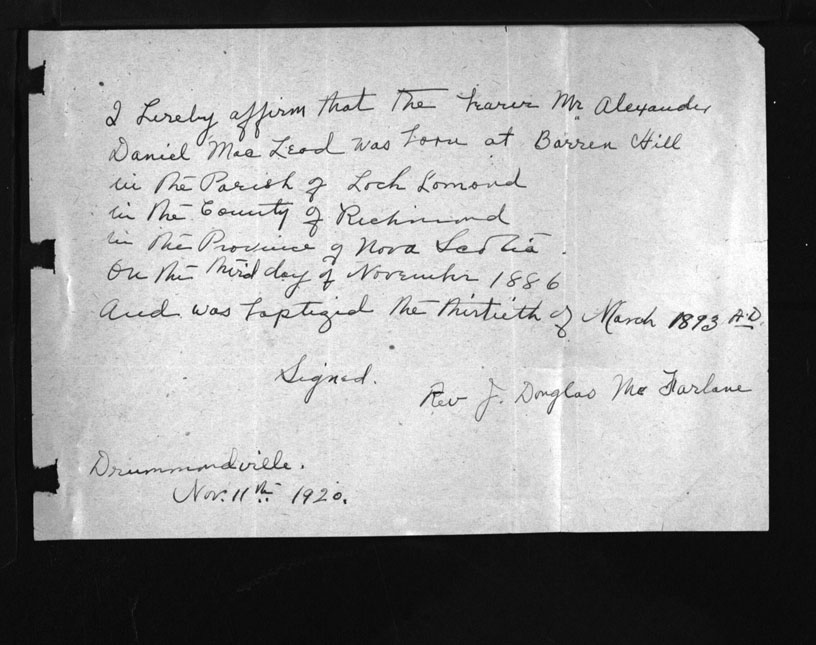 I hereby affirm that the bearer Mr Alexander
Daniel MacLeod was born at Barren Hill
in the Parish of Loch Lomond
in the County of Richmond
in the Province of Nova Scotia.
On the third day of November 1886
And was baptized the thirtieth of March 1893 A.D.
Signed.
Rev J. Douglas McFarlane
Drummondville.
Nov. 11th. 1920.